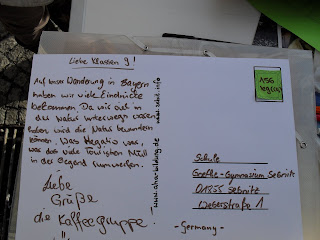 Liebe Klassen 9!
Auf unser Wanderung in Bayern
haben wir viele Eindrücke
bekommen. Da wir auf in
der Natur unterwegs waren
haben wird die Natur bewundern
können. Das Negativ war,
was das viele Touristen Müll
in der Gegend rumwerfen.
Liebe
Grüße
die Kaffeegruppe!
www.aha-bildung.de
Schule
Goethe-Gymnasium Sebnitz
01855 Sebnitz
Weberstraße 1
-Germany-